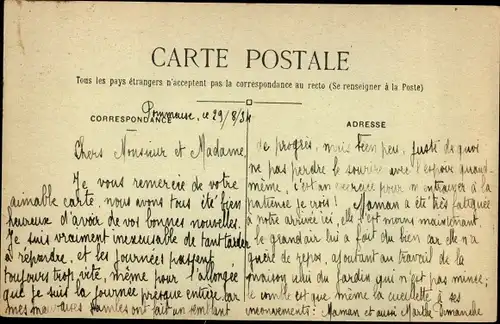 CARTE POSTALE
Tous les pays étrangers n'acceptent pas la correspondance au recto (Se renseigner à la Poste)
CORRESPONDANCE
Pommeuse, ce 29/8/34
ADRESSE
Chers Monsieur et Madame,
Je vous remercie de votre
aimable carte, nous avons tous été bien
heureux d'avoir de vos bonnes nouvelles.
Je suis vraiment inexcusable de tant tarder
à répondre, et les journées passent
toujours trop vite, même pour l'allongée
que je suis la journée presque entière, car
mes mauvaises jambes ont fait un semblant
de progrès, mais bien peu, juste de quoi
ne pas perdre le sourire avec l'espoir quand-
même, c'est un exercice pour m'entrayer à la
patience je crois! Maman a été très fatiguée
à notre arrivée ici, elle s'est moins maintenant,
le grand air lui a fait du bien car elle n'a
guère de repos, ajoutant au travail de la
maison celui du jardin qui n'est pas mince;
le comble est que même la cueillette a ses
inconvénients: Maman et aussi Marthe dimanche